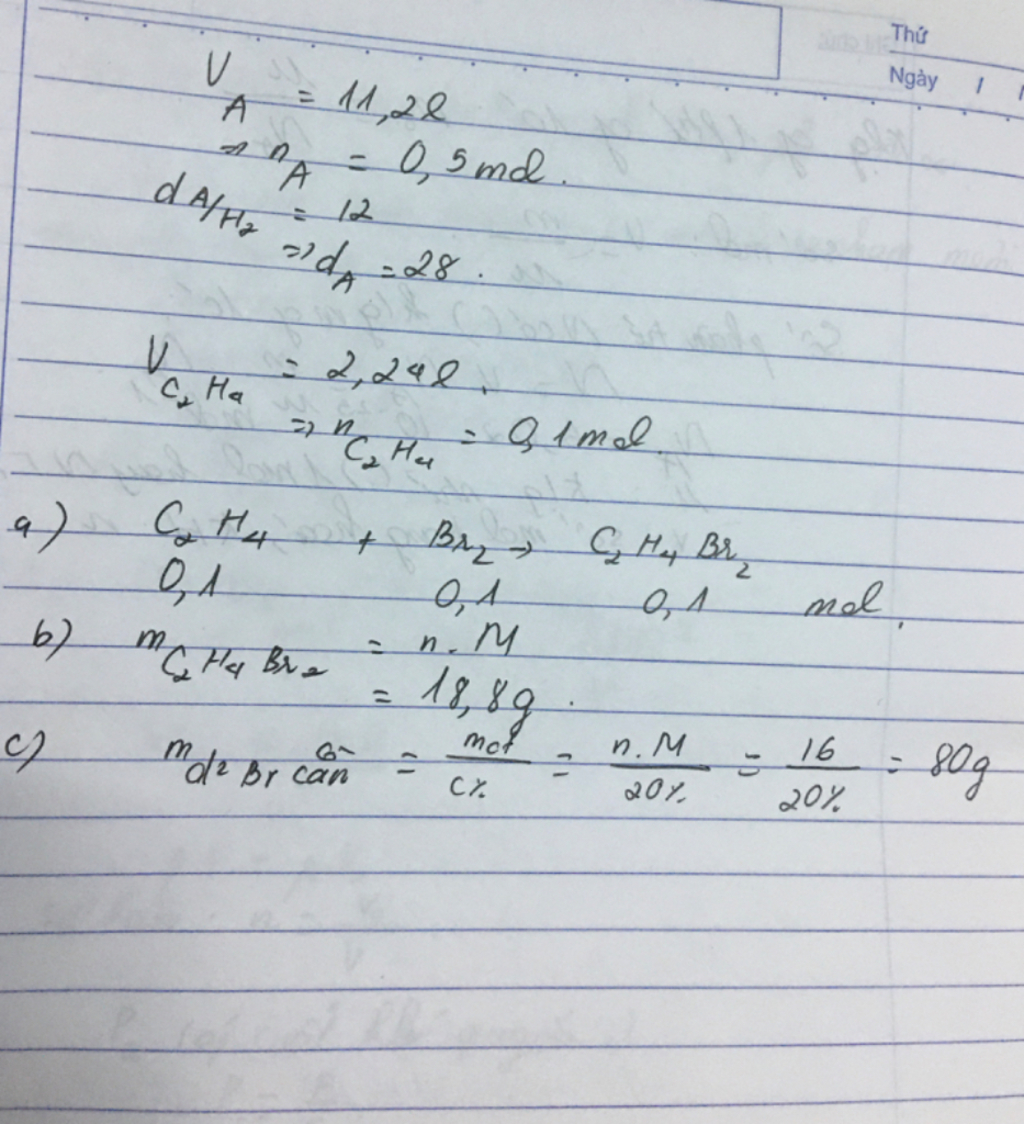 Thứ
Ngày / /
V_A = 11,2l
⇒ n_A = 0,5 mol.
d A/H₂ = 12
⇒ d_A = 28.
V_C₂H₄ = 2,24l.
⇒ n_C₂H₄ = 0,1 mol.
a) C₂H₄ + Br₂ → C₂H₄Br₂
0,1 0,1 0,1 mol.
b) m_C₂H₄Br₂ = n.M
= 18,8g.
c) m_d² Br cần = mct/C% = n.M/20% = 16/20% = 80g